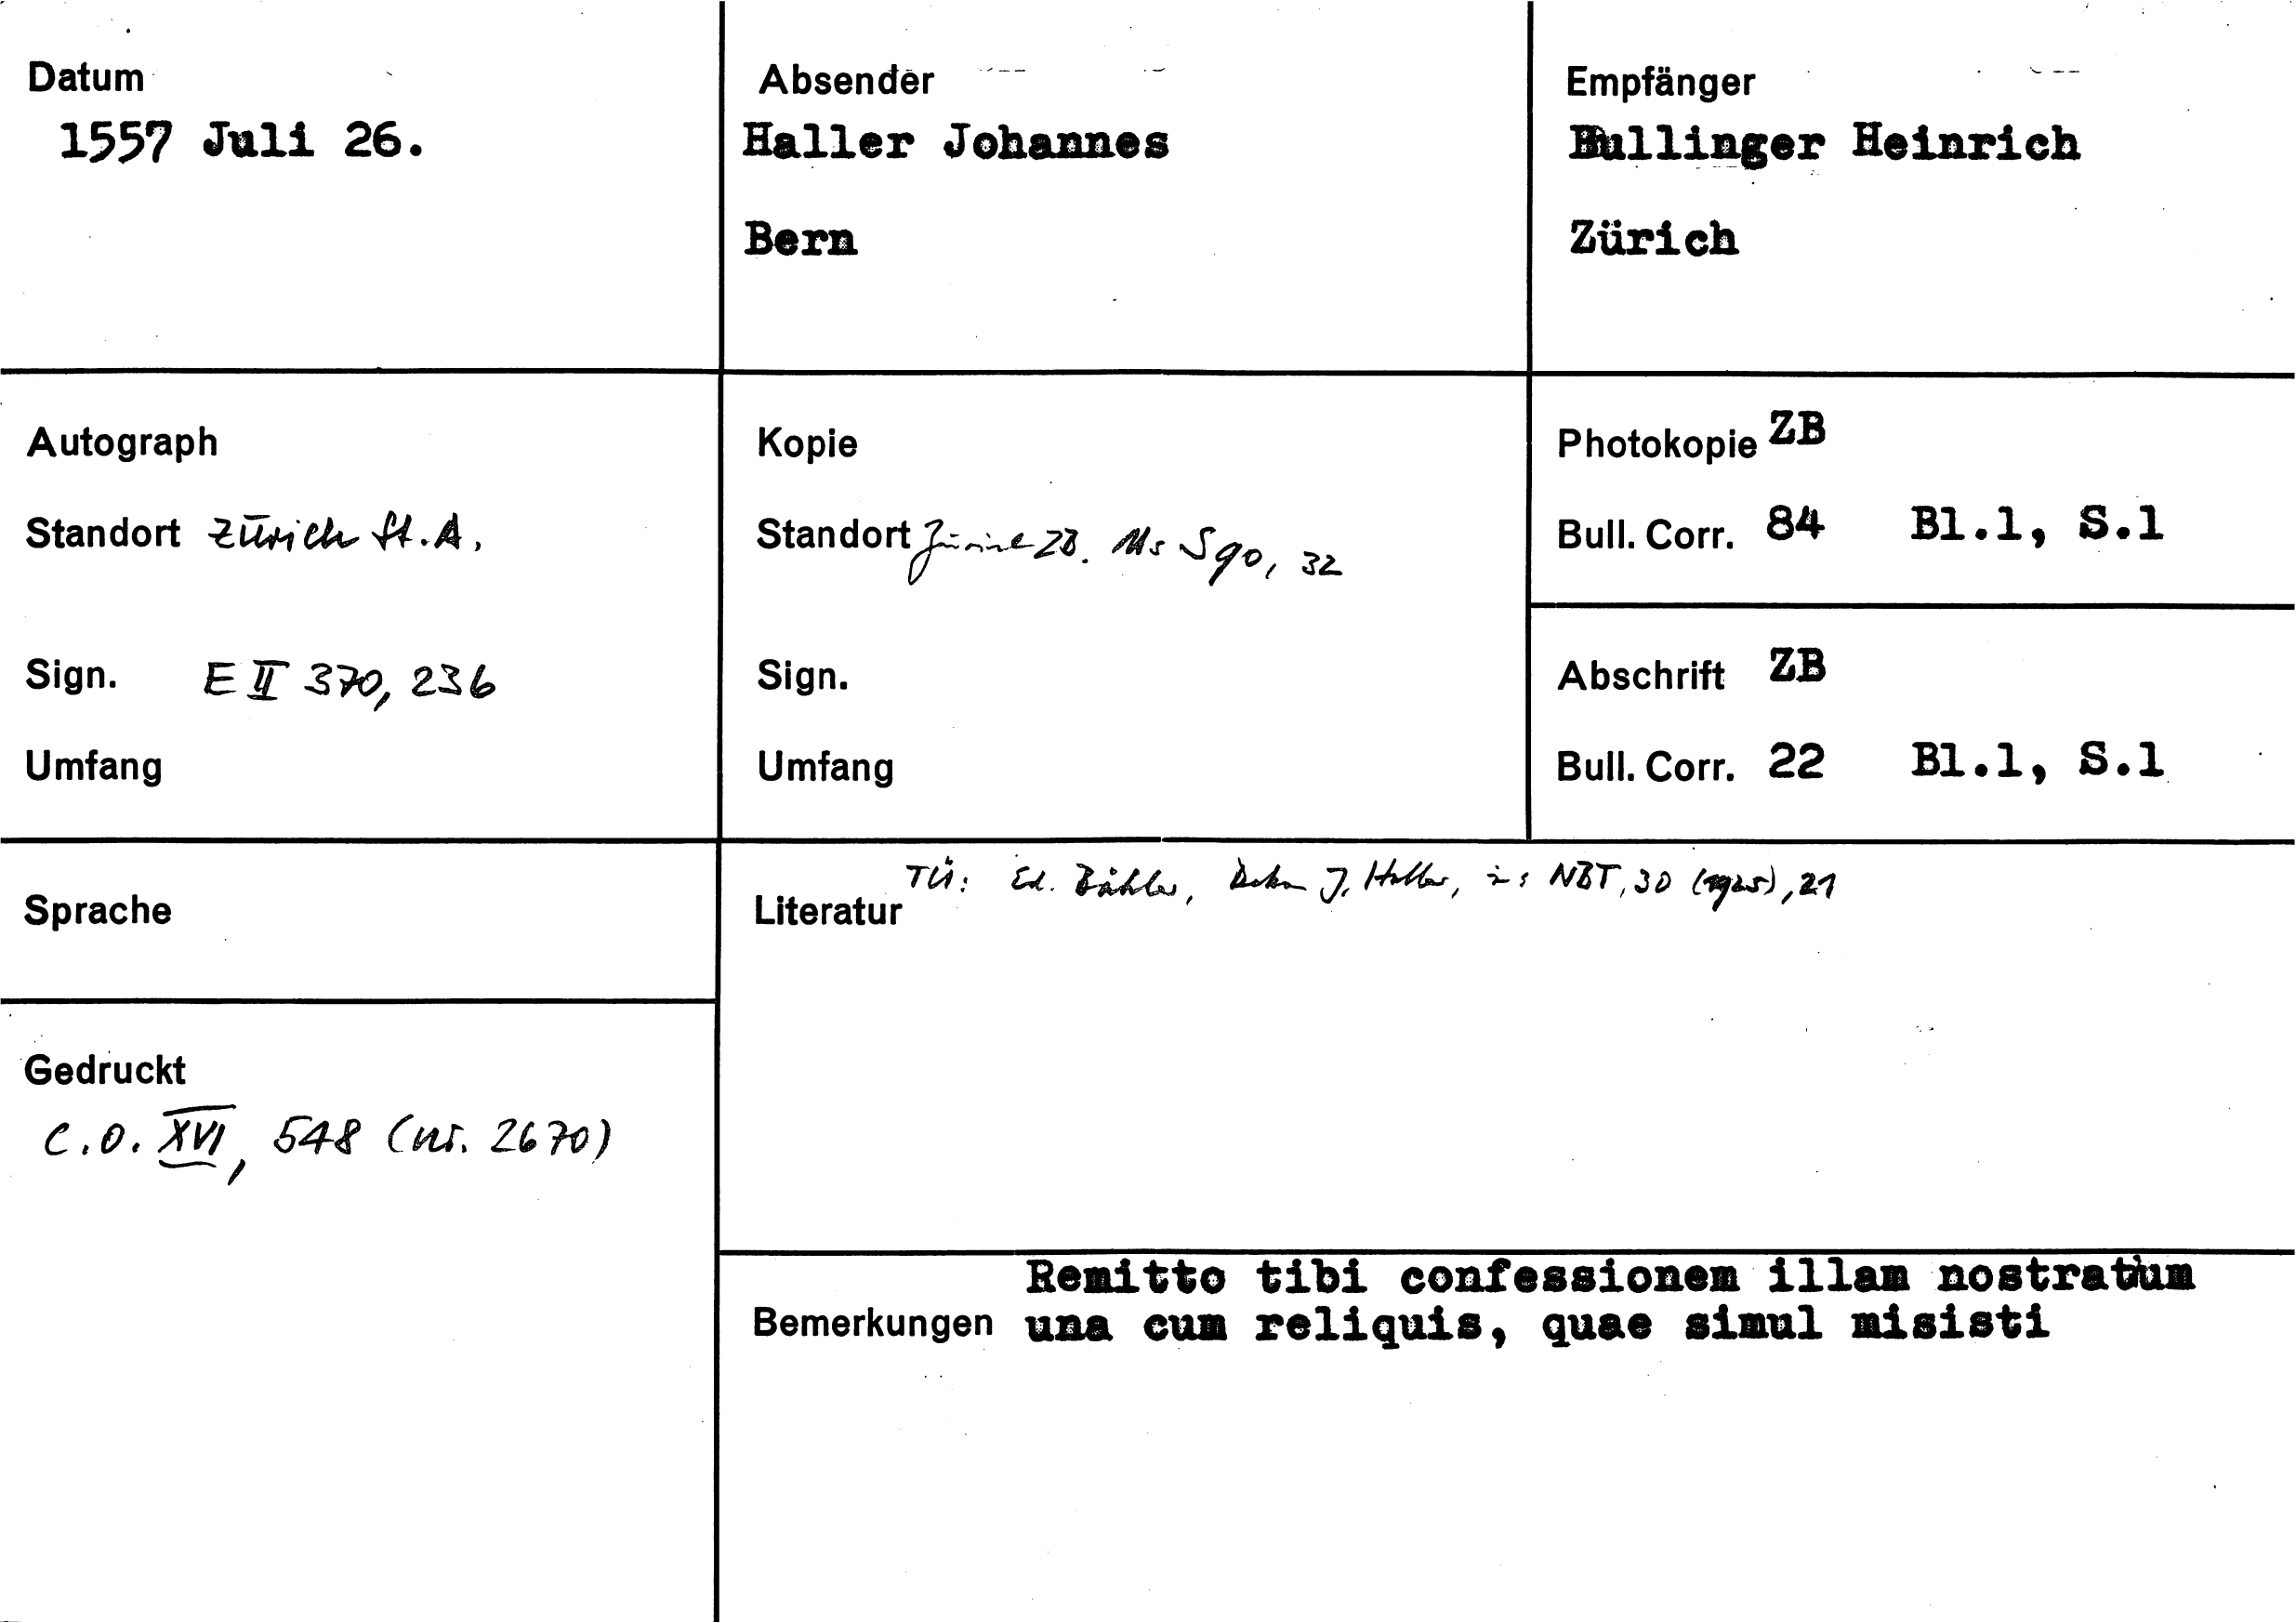 Datum
1557 Juli 26.
Absender
Haller Johannes
Bern
Empfänger
Bullinger Heinrich
Zürich
Autograph
Standort Zürich St.A.
Sign. E II 370, 236
Umfang
Kopie
Standort Zürich ZB. Ms S 90, 32
Sign.
Umfang
Photokopie ZB
Bull. Corr. 84 Bl.1, S.1
Abschrift ZB
Bull. Corr. 22 Bl.1, S.1
Sprache
Gedruckt
C.O. XVI, 548 (nr. 2670)
Literatur TÜ: Ed. Bähler, Dekan J. Haller, in: NBT, 30 (1925), 21
Bemerkungen
Remitto tibi confessionem illam nostratum
una cum reliquis, quae simul misisti